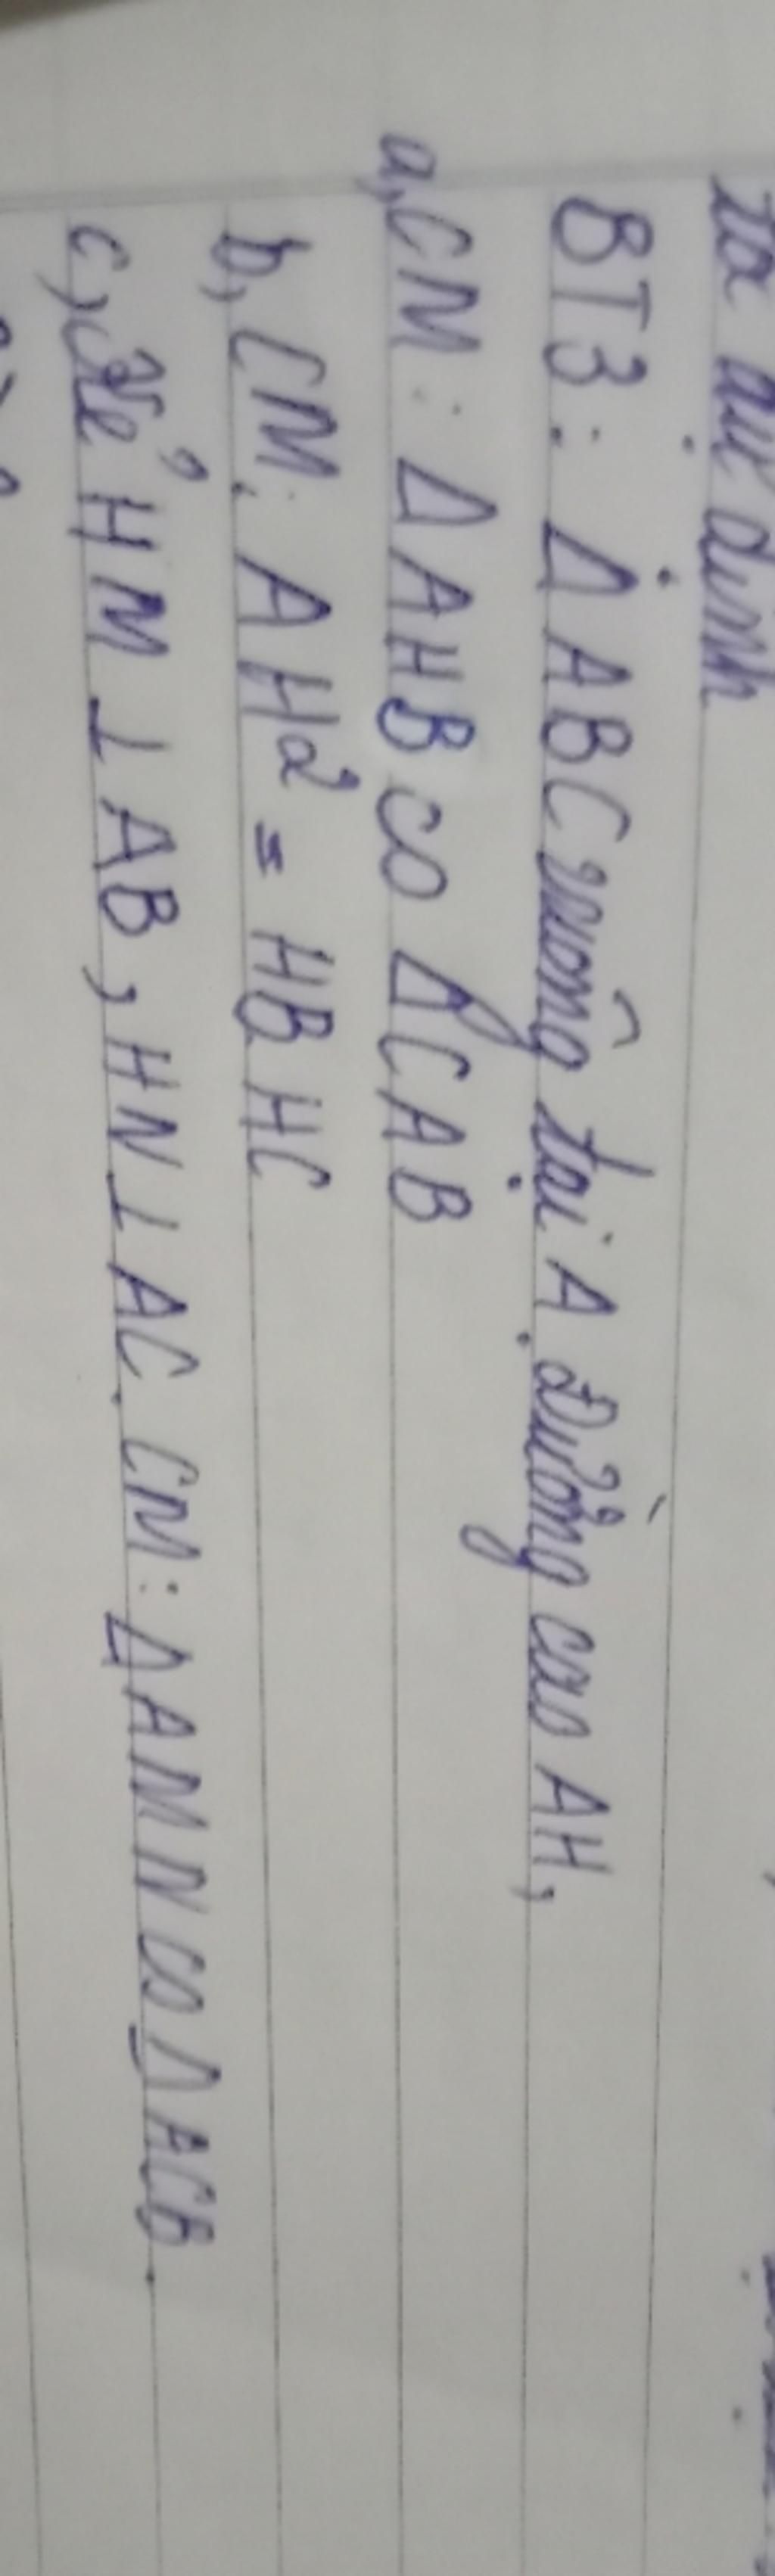 BT3: Δ ABC vuông tại A Đường cao AH,
a, CM: Δ AHB ∽ ΔCAB
b, CM: AH² = HB.HC
c, Kẻ HM ⊥ AB, HN ⊥ AC. CM: ΔAMN ∽ ΔACB.